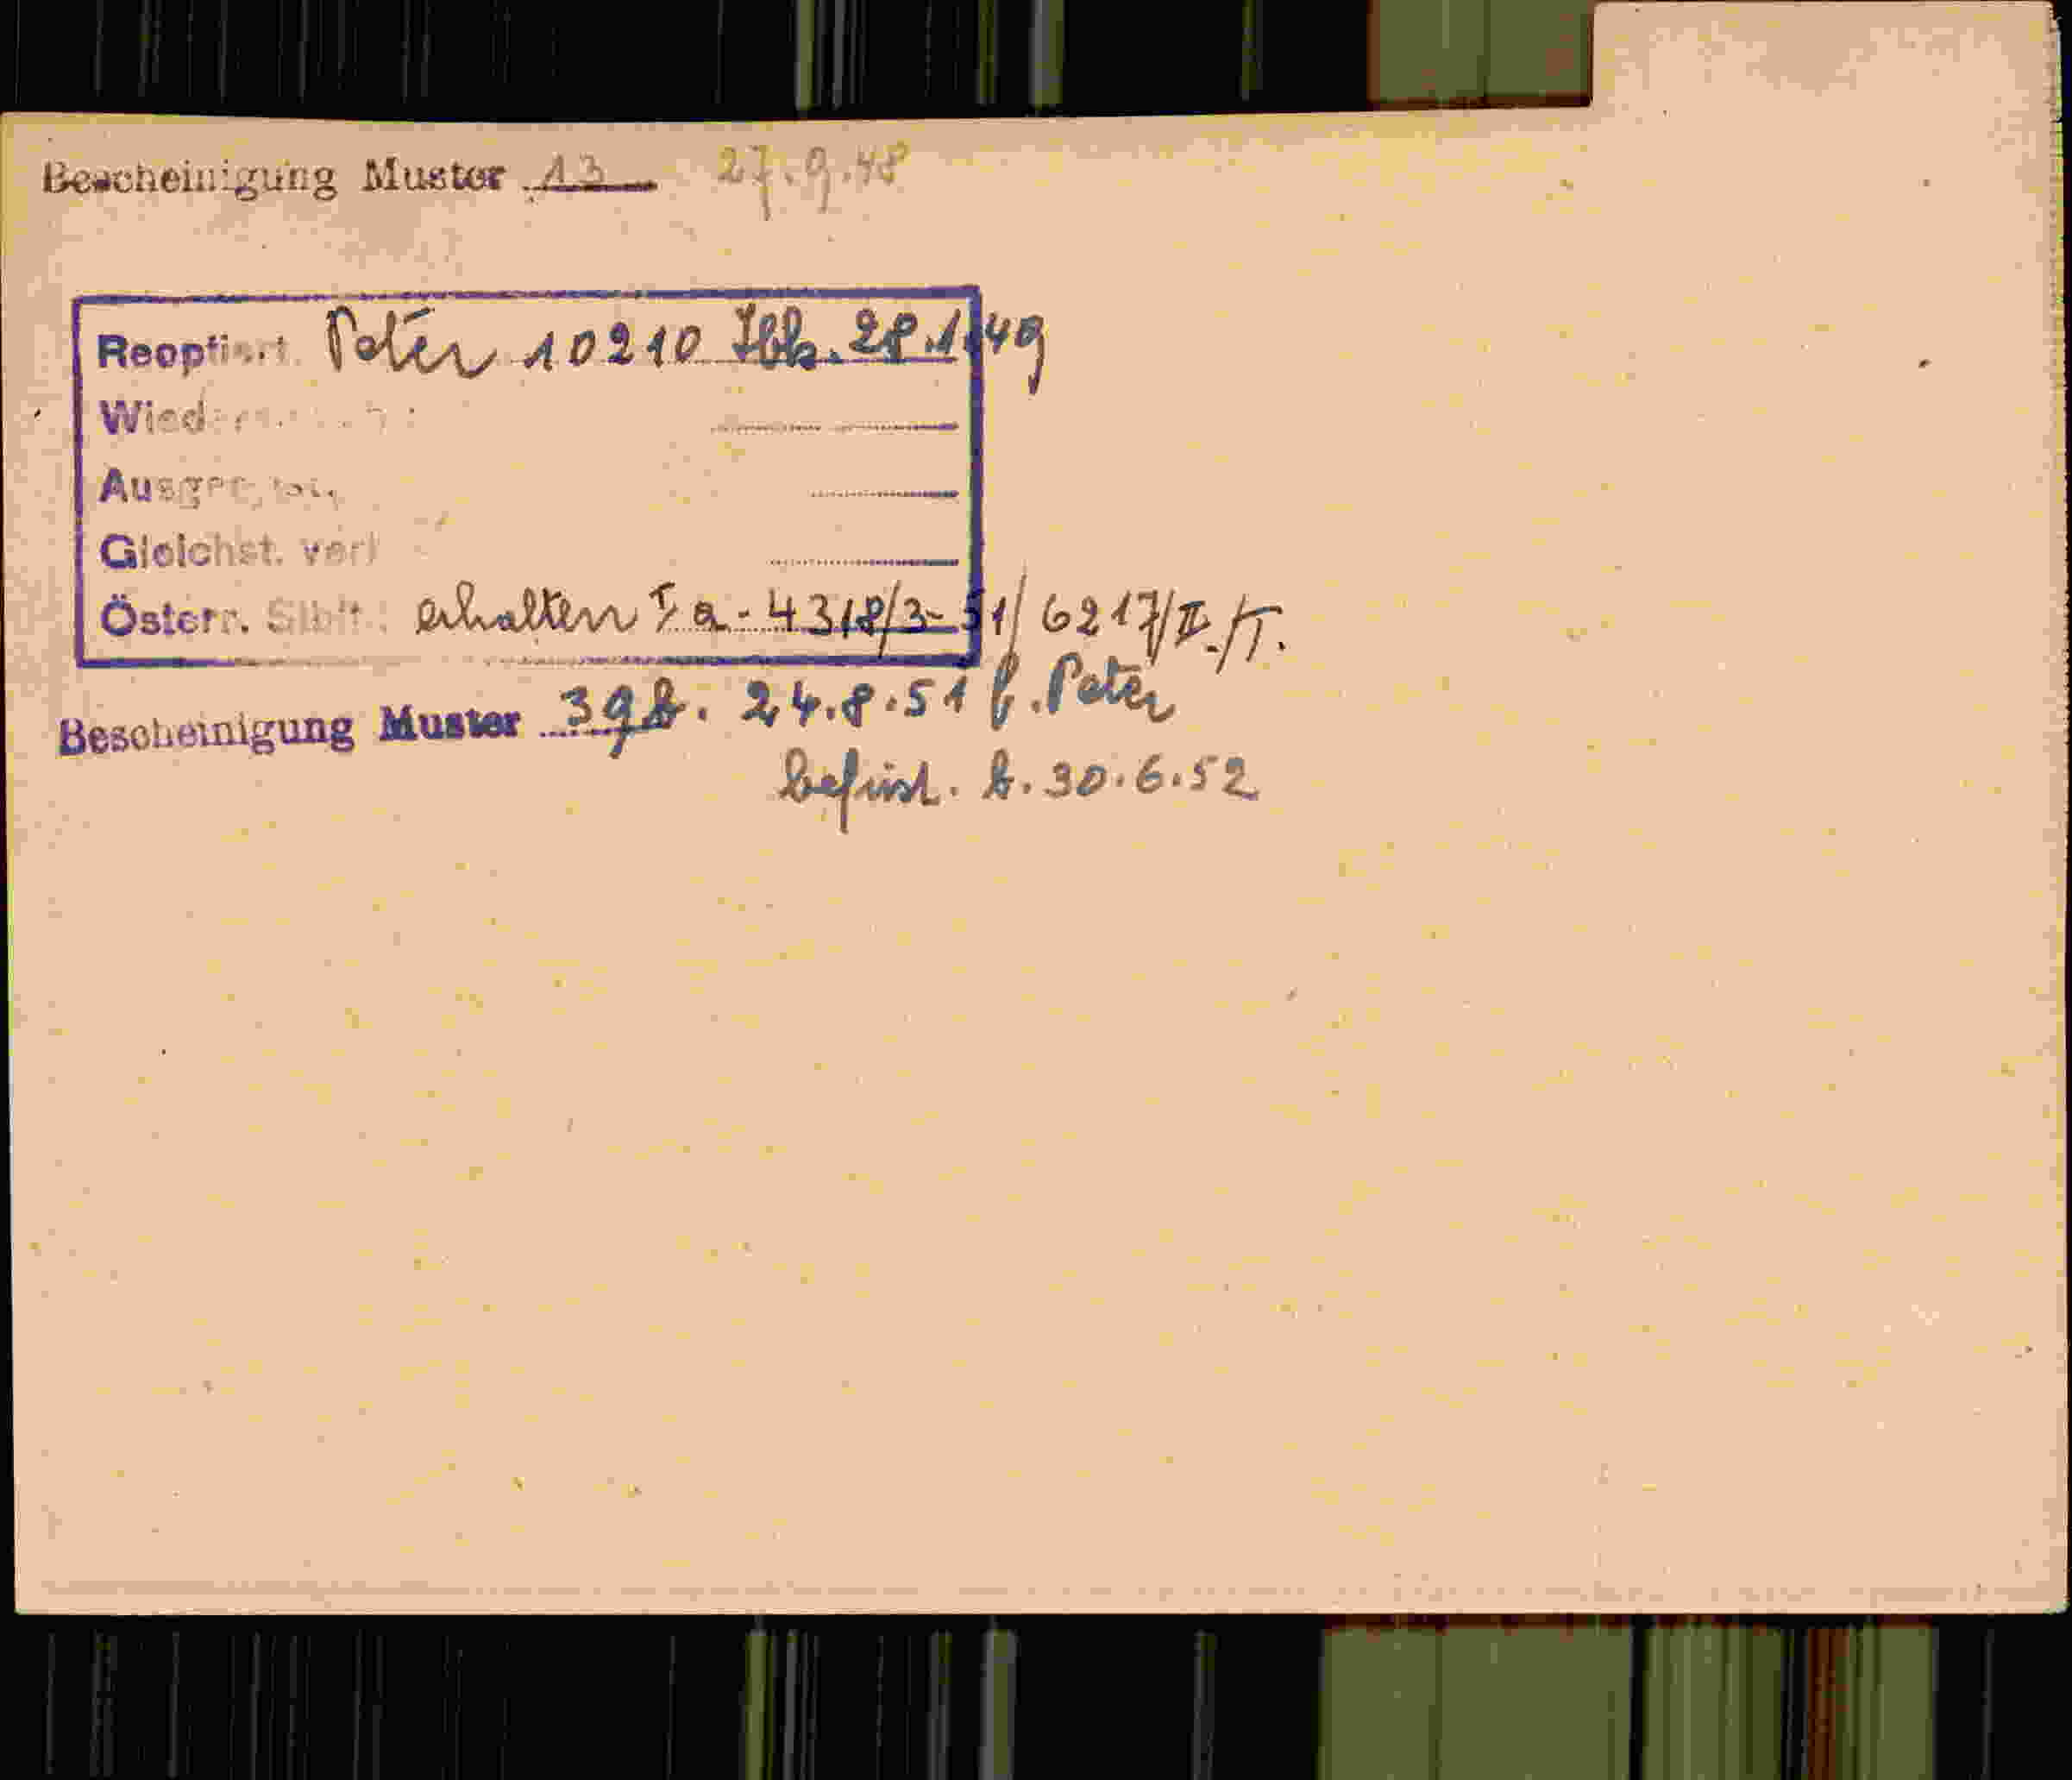 Bescheinigung Muster 13 27.9.48
Reoptiert Peter 10210 Ibk. 28.1.49
Gleichst. verl
Österr. Stb. erhalten Ia - 4318/3-51/6217/II./T.
Bescheinigung Muster 39b. 24.8.51 f. Peter
befrist. b. 30.6.52